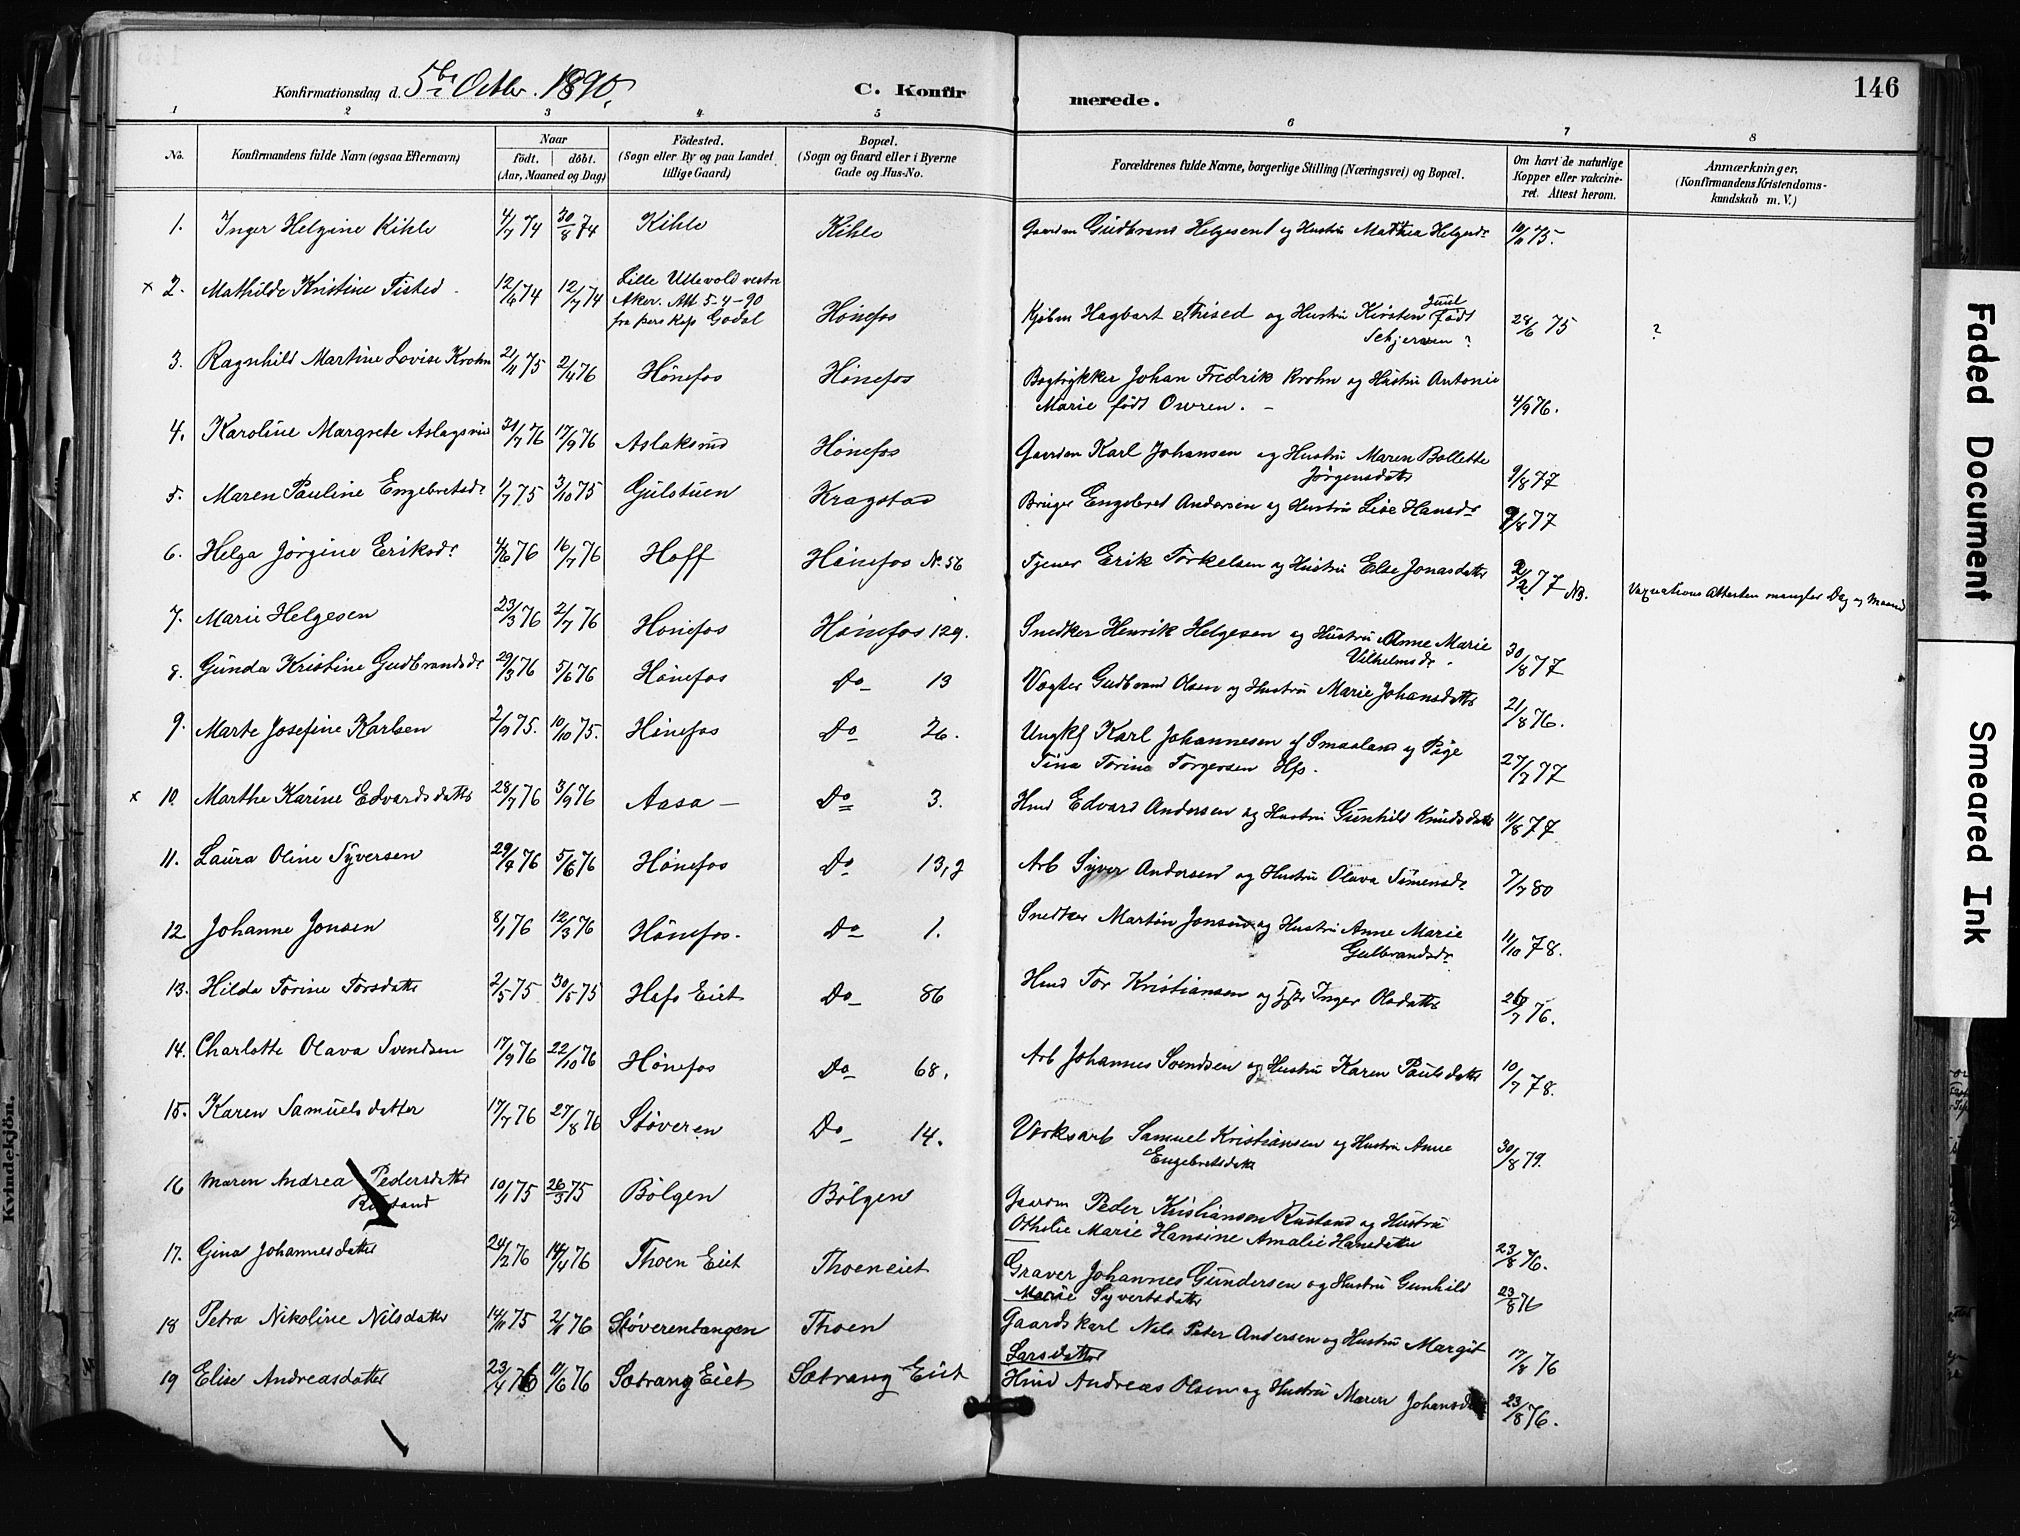 Konfirmationsdag d. 5te Octbr. 1890. C. Konfirmerede. 146
1 2 3 4 5 6 7 8
No. Konfirmandens fulde Navn (ogsaa Efternavn) Naar födt. döbt. (Aar, Maaned og Dag) Födested. (Sogn eller By og paa Landet tillige Gaard) Bopæl. (Sogn og Gaard eller i Byerne Gade og Hus-No. Forældrenes fulde Navne, borgerlige Stilling (Næringsvei) og Bopæl. Om havt de naturlige Kopper eller vakcineret. Attest herom. Anmærkninger. (Konfirmandens Kristendomskundskab m. V.)
1. Inger Helgine Kihle 4/7 74 30/8 74 Kihle Kihle Gaardm Gudbrand Helgesen og Hustru Mathea Helgesdr 10/11 75.
x 2. Mathilde Kristine Tisted 12/6 74 12/7 74 Lille Ullevold vestre Aker. Att 5-4-90 fra pers Kap Godal Hönefos Kjøbm Hagbart Thised og Hustru Kirsten Juul født Schjerssen? 24/6 75 ?
3. Ragnhild Martine Lovise Krohn 21/11 75 2/4 76 Hönefos Hönefos Bogtrykker Johan Fredrik Krohn og Hustru Antonie Marie født Owren. - 4/9 76.
4. Karoline Margrete Aslagsrud 31/7 76 17/9 76 Aslaksrud Hönefos Gaardm Karl Johansen og Hustru Maren Bollette Jørgensdatr 9/8 77
5. Maren Pauline Engebretsdr 1/7 75 3/10 75 Gulstuen Kragstad Bruger Engebret Andersen og Hustru Lise Hansdr 9/8 77
6. Helga Jørgine Eriksdr 4/6 76 16/7 76 Hoff Hönefos No 56 Tjener Erik Torkelsen og Hustru Else Jonasdatter 2/2 77 NB. Vaxnations Attesten mangler Dag og Maaned
7. Marie Helgesen 23/3 76 2/7 76 Honefos Hönefos 129. Snedker Henrik Helgesen og Hustru Anne Marie Vilhelmsdr. 30/8 77
8. Gunda Kristine Gudbrandsdr 29/3 76 5/6 76 Hönefos Do 13 Vægter Gudbrand Olsen og Hustru Marie Johansdatter 21/8 76.
9. Marte Josefine Karlsen 2/9 75. 10/10 75. Hönefos Do 26. Ungk Karl Johannesen af Smaaland og Pige Tina Torine Torgersen Hfs. 27/7 77
x 10. Marthe Karine Edvardsdatter 28/7 76 3/9 76 Aasa - Do 3. Hmd Edvard Andersen og Hustru Gunhild Knudsdatter 11/8 77
11. Laura Oline Syversen 29/4 76 5/6 76 Hönefos Do 13,2 Arb Syver Andersen og Hustru Olava Simensdr 7/7 80
12 Johanne Jonsen 8/1 76 12/3 76 Hönefos. Do 1. Snedker Martin Jonsen og Hustru Anne Marie Gulbrandsdr 11/10 78.
13. Hilda Torine Torsdatter 2/5 75 30/5 75 Hafs Eiet Do 86 Hmd Tor Kristiansen og Inger Olsdatter 26/7 76.
14. Charlotte Olava Svendsen 17/9 76 22/10 76 Hönefos Do 68. Arb Johannes Svendsen og Hustru Karen Paulsdatter 10/7 78.
15. Karen Samuelsdatter 17/7 76 27/8 76 Støveren Do 14. Værksarb Samuel Kristiansen og Hustru Anne Engebretsdatr 30/8 79.
16 Maren Andrea Pedersdatter Rustand 10/1 75 26/3 75 Bölgen Bölgen Gaardm Peder Kristiansen Rustand og Hustru Othelie Marie Hansine Amalie Hansdatter 23/8 76.
17. Gina Johannesdatter 24/2 76 14/4 76 Thoen Eiet Thoen eiet Graver Johannes Gundersen og Hustru Gunhild Marie Syvertsdatter 23/8 76
18 Petra Nikoline Nilsdatter 14/11 75 2/11 76 Støverentangen Thoen Gaardskarl Nils Peter Andersen og Hustru Margit Larsdatter 17/8 76
19 Elise Andreasdatter 23/4 76 11/6 76 Sætrang Eiet Sætrang Eiet Hmd Andreas Olsen og Hustru Maren Johansdr 23/8 76.
Kvindekjön.
Faded Document
Smeared Ink